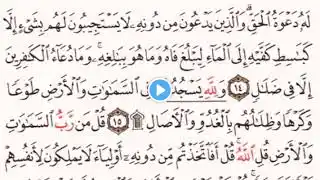 لَهُۥ دَعْوَةُ ٱلْحَقِّ ۖ وَٱلَّذِينَ يَدْعُونَ مِن دُونِهِۦ لَا يَسْتَجِيبُونَ لَهُم بِشَىْءٍ إِلَّا
كَبَٰسِطِ كَفَّيْهِ إِلَى ٱلْمَآءِ لِيَبْلُغَ فَاهُ وَمَا هُوَ بِبَٰلِغِهِۦ ۚ وَمَا دُعَآءُ ٱلْكَٰفِرِينَ
إِلَّا فِى ضَلَٰلٍ ١٤ وَلِلَّهِ يَسْجُدُ ٱلسَّمَٰوَٰتِ وَٱلْأَرْضِ طَوْعًا
وَكَرْهًا وَظِلَٰلُهُم بِٱلْغُدُوِّ وَٱلْءَاصَالِ ۩ ١٥ قُلْ مَن رَّبُّ ٱلسَّمَٰوَٰتِ
وَٱلْأَرْضِ قُلِ ٱللَّهُ ۚ قُلْ أَفَٱتَّخَذْتُم مِّن دُونِهِۦٓ أَوْلِيَآءَ لَا يَمْلِكُونَ لِأَنفُسِهِمْ